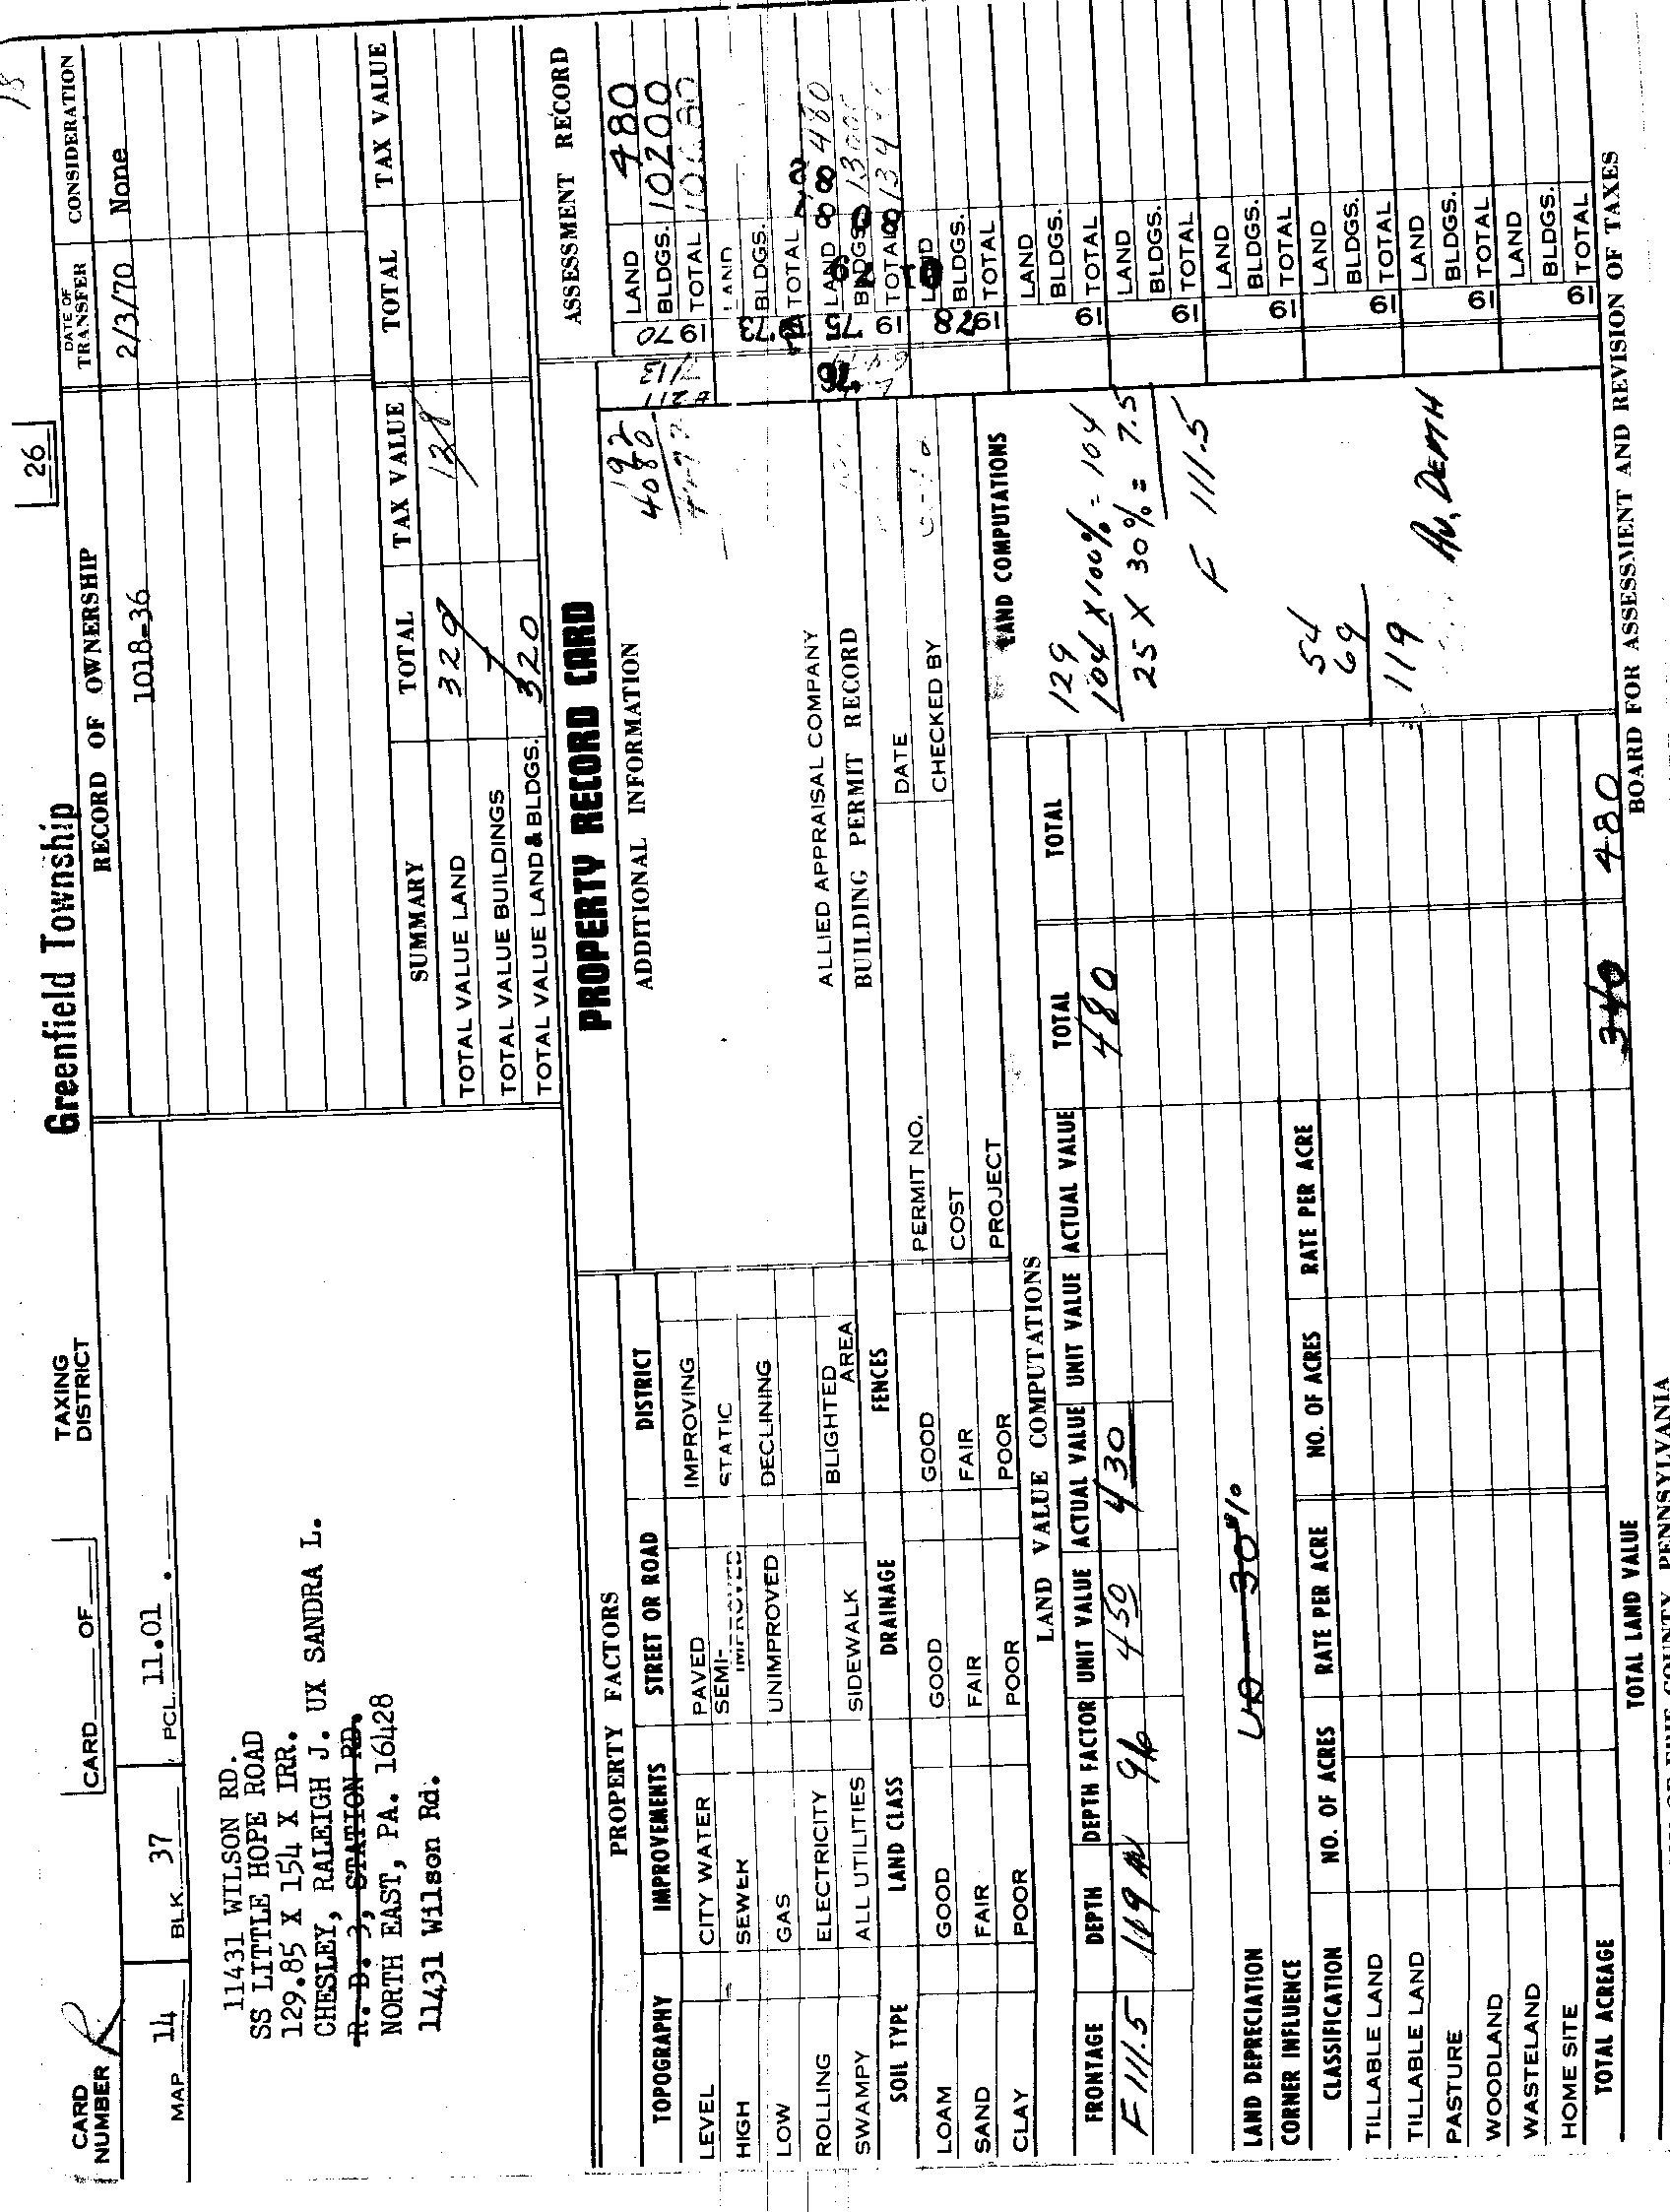 26
Greenfield Township
CARD NUMBER R
CARD OF
TAXING DISTRICT
MAP 14 BLK. 37 PCL. 11.01
11431 WILSON RD.
SS LITTLE HOPE ROAD
129.85 X 154 X IRR.
CHESLEY, RALEIGH J. UX SANDRA L.
R. D. 3, STATION RD.
NORTH EAST, PA. 16428
11431 Wilson Rd.
RECORD OF OWNERSHIP
DATE OF TRANSFER
CONSIDERATION
1018-36 2/3/70 None
SUMMARY TOTAL TAX VALUE TOTAL TAX VALUE
TOTAL VALUE LAND 320 128
TOTAL VALUE BUILDINGS
TOTAL VALUE LAND & BLDGS. 320
PROPERTY RECORD CARD
PROPERTY FACTORS
TOPOGRAPHY IMPROVEMENTS STREET OR ROAD DISTRICT
LEVEL CITY WATER PAVED IMPROVING
HIGH SEWER SEMI-IMPROVED STATIC
LOW GAS UNIMPROVED DECLINING
ROLLING ELECTRICITY BLIGHTED AREA
SWAMPY ALL UTILITIES SIDEWALK
SOIL TYPE LAND CLASS DRAINAGE FENCES
LOAM GOOD GOOD GOOD
SAND FAIR FAIR FAIR
CLAY POOR POOR POOR
ADDITIONAL INFORMATION
192
4080
ALLIED APPRAISAL COMPANY
BUILDING PERMIT RECORD
PERMIT NO. DATE
COST CHECKED BY
PROJECT
ASSESSMENT RECORD
1970 LAND 480
BLDGS. 10200
TOTAL 10680
73 LAND
BLDGS.
TOTAL
75 LAND 480
BLDGS. 13005
19 TOTAL
78 LAND
BLDGS.
19 TOTAL
LAND
BLDGS.
19 TOTAL
LAND
BLDGS.
19 TOTAL
LAND
BLDGS.
19 TOTAL
LAND
BLDGS.
19 TOTAL
LAND
BLDGS.
19 TOTAL
LAND
BLDGS.
19 TOTAL
LAND VALUE COMPUTATIONS
FRONTAGE DEPTH DEPTH FACTOR UNIT VALUE ACTUAL VALUE UNIT VALUE ACTUAL VALUE TOTAL TOTAL
F 111.5 119 96 450 430 480
LAND DEPRECIATION 30%
CORNER INFLUENCE
CLASSIFICATION NO. OF ACRES RATE PER ACRE NO. OF ACRES RATE PER ACRE
TILLABLE LAND
TILLABLE LAND
PASTURE
WOODLAND
WASTELAND
HOME SITE
TOTAL ACREAGE TOTAL LAND VALUE 340 480
LAND COMPUTATIONS
129
104 X 100% = 104
25 X 30% = 7.5
F 111.5
54
69
119 Av, DEPTH
BOARD FOR ASSESSMENT AND REVISION OF TAXES
ERIE COUNTY, PENNSYLVANIA